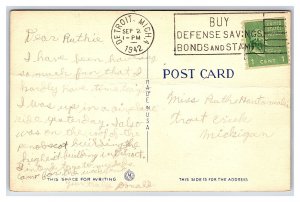 DETROIT, MICH.
SEP 2
1-PM
1942
BUY
DEFENSE SAVINGS
BONDS AND STAMPS
1 CENT 1
Dear Ruthie
I have been having
so much fun that I
hardly have time to
I was up in a airplane
ride yesterday. I also
was on the roof of the
penobscot building the
highest building in Detroit.
Donald
POST CARD
MADE IN U.S.A.
Miss Ruth
Trout Creek
Michigan
THIS SPACE FOR WRITING
THIS SIDE IS FOR THE ADDRESS